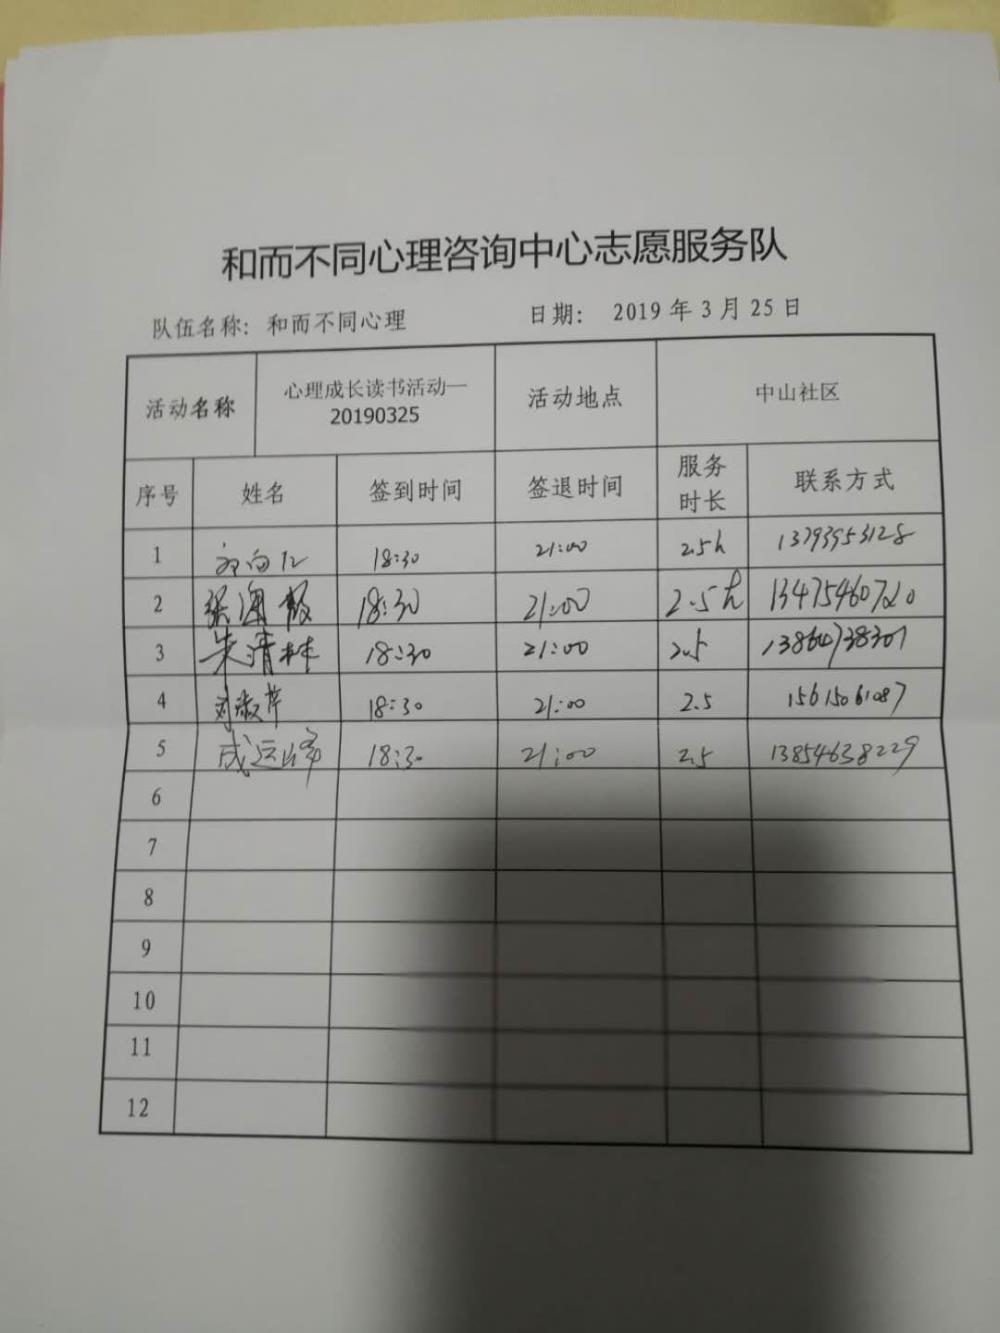 和而不同心理咨询中心志愿服务队
队伍名称: 和而不同心理 日期: 2019 年 3 月 25 日
活动名称 心理成长读书活动—20190325 活动地点 中山社区
序号 姓名 签到时间 签退时间 服务时长 联系方式
1 18:30 21:00 2.5h 13793953128
2 张海霞 18:30 21:00 2.5h 13475460720
3 朱清林 18:30 21:00 2.5
4 刘淑芹 18:30 21:00 2.5 15615061087
5 成运峰 18:30 21:00 2.5 13854638229
6
7
8
9
10
11
12